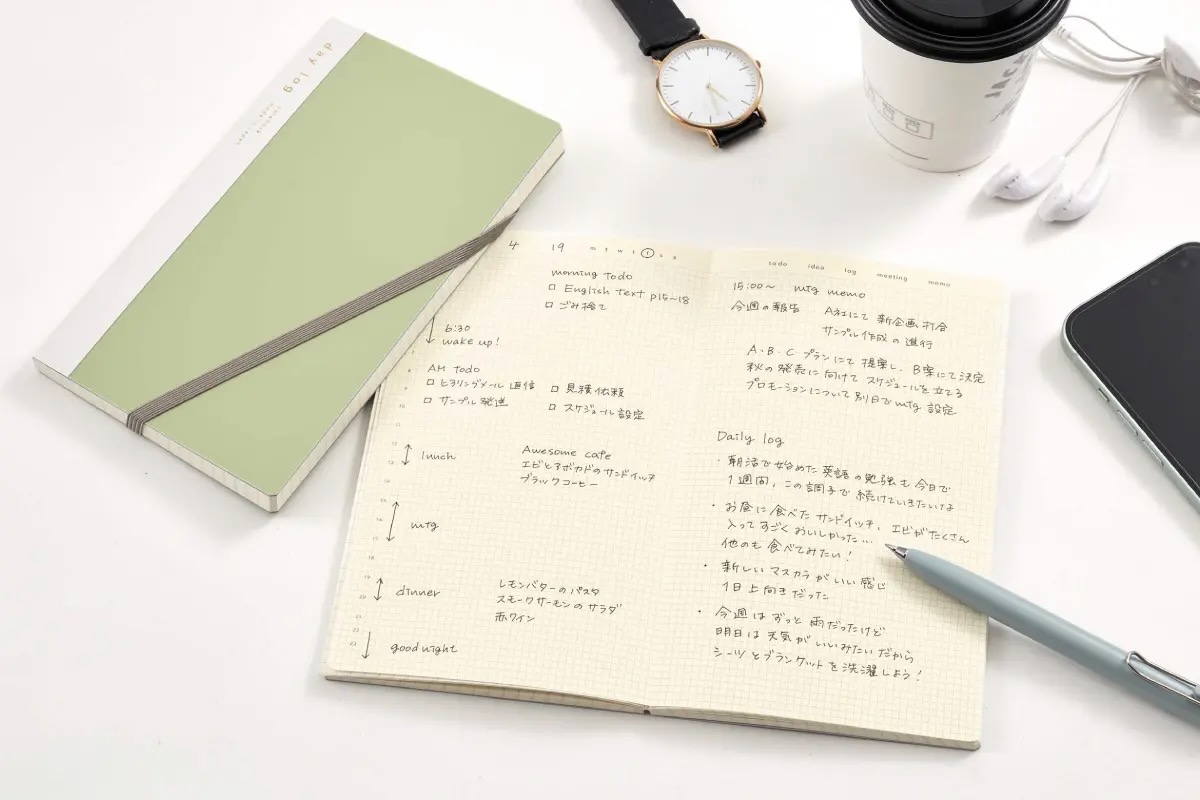 day log
4 19 m t w t f s s
morning todo
□ English text p15~18
□ ごみ捨て
6:30
wake up!
AM todo
□ ヒアリングメール 返信 □ 見積 依頼
□ サンプル 発送 □ スケジュール 設定
lunch
Awesome cafe
エビとアボカドのサンドイッチ
ブラックコーヒー
mtg
dinner
レモンバターの パスタ
スモークサーモンの サラダ
赤ワイン
good night
todo idea log meeting memo
15:00~ mtg memo
今週の報告 A社にて 新企画 打合
サンプル 作成 の 進行
A・B・C プランにて 提案し、B案にて決定
秋の発売に向けて スケジュールを立てる
プロモーションについて 別日でmtg 設定
Daily log
・朝活で始めた 英語の勉強も 今日で
1週間, この調子で 続けていきたいな
・お昼に食べた サンドイッチ, エビがたくさん
入ってすごく おいしかった…
他のも 食べてみたい!
・新しい マスカラが いい 感じ
1日 上向きだった
・今週は ずっと 雨だったけど
明日は 天気が いいみたいだから
シーツとブランケットを 洗濯しよう!